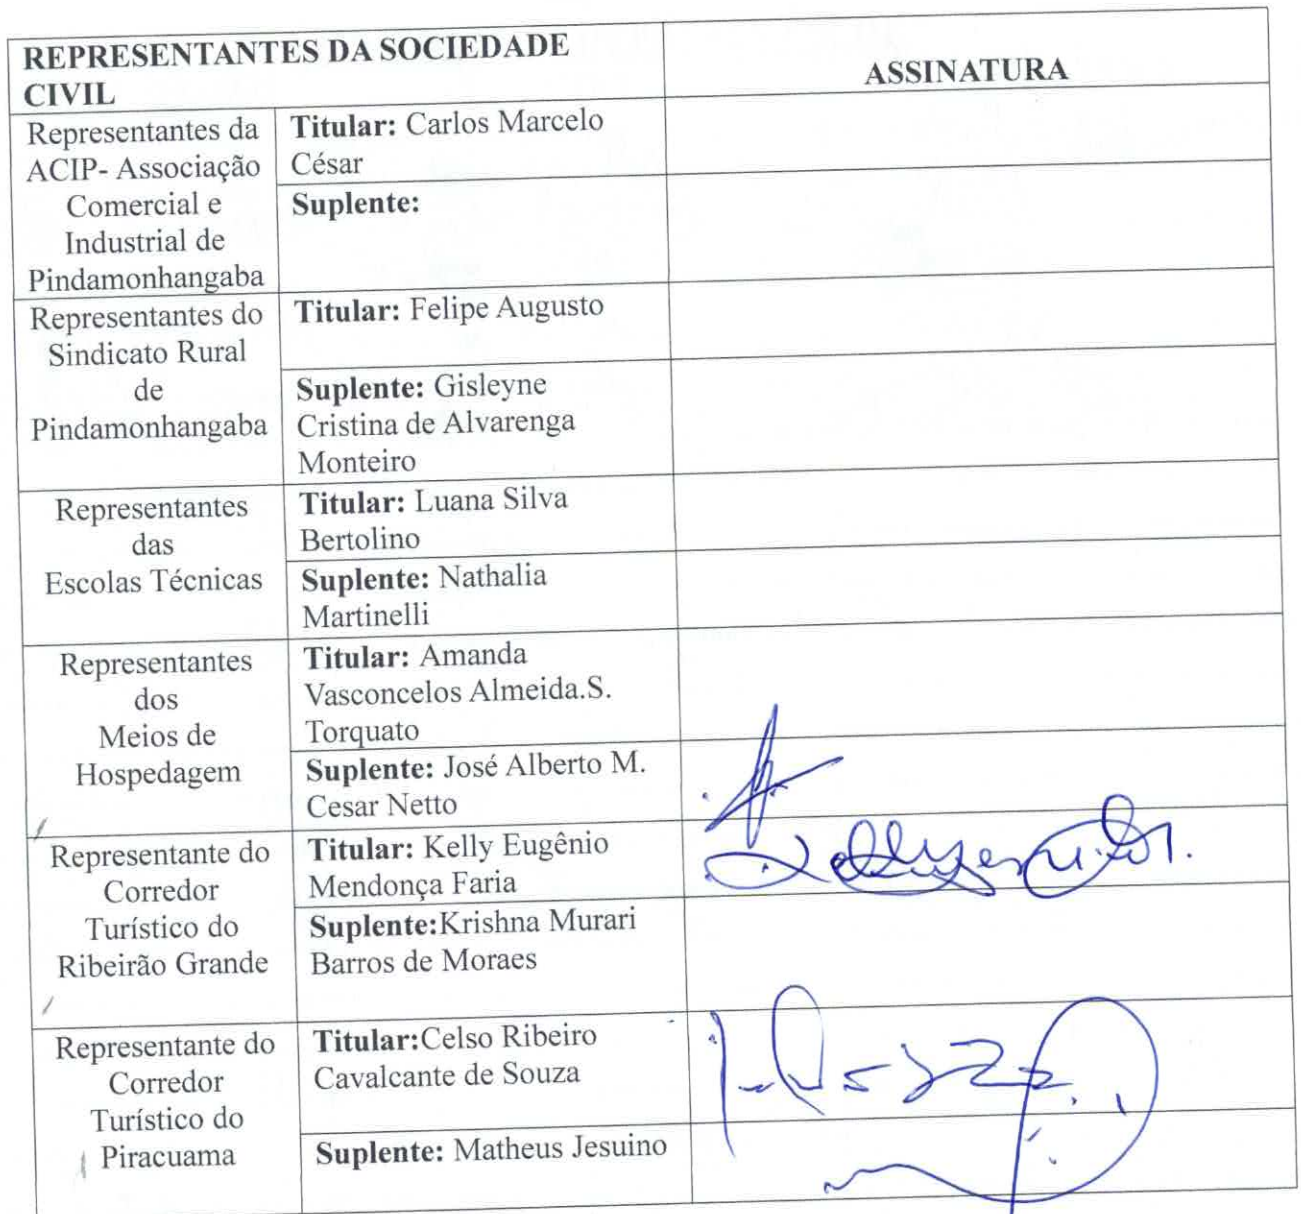 REPRESENTANTES DA SOCIEDADE
CIVIL
ASSINATURA
Representantes da
ACIP- Associação
Comercial e
Industrial de
Pindamonhangaba
Titular: Carlos Marcelo
César
Suplente:
Representantes do
Sindicato Rural
de
Pindamonhangaba
Titular: Felipe Augusto
Suplente: Gisleyne
Cristina de Alvarenga
Monteiro
Representantes
das
Escolas Técnicas
Titular: Luana Silva
Bertolino
Suplente: Nathalia
Martinelli
Representantes
dos
Meios de
Hospedagem
Titular: Amanda
Vasconcelos Almeida.S.
Torquato
Suplente: José Alberto M.
Cesar Netto
Representante do
Corredor
Turístico do
Ribeirão Grande
Titular: Kelly Eugênio
Mendonça Faria
Suplente:Krishna Murari
Barros de Moraes
Representante do
Corredor
Turístico do
Piracuama
Titular:Celso Ribeiro
Cavalcante de Souza
Suplente: Matheus Jesuino